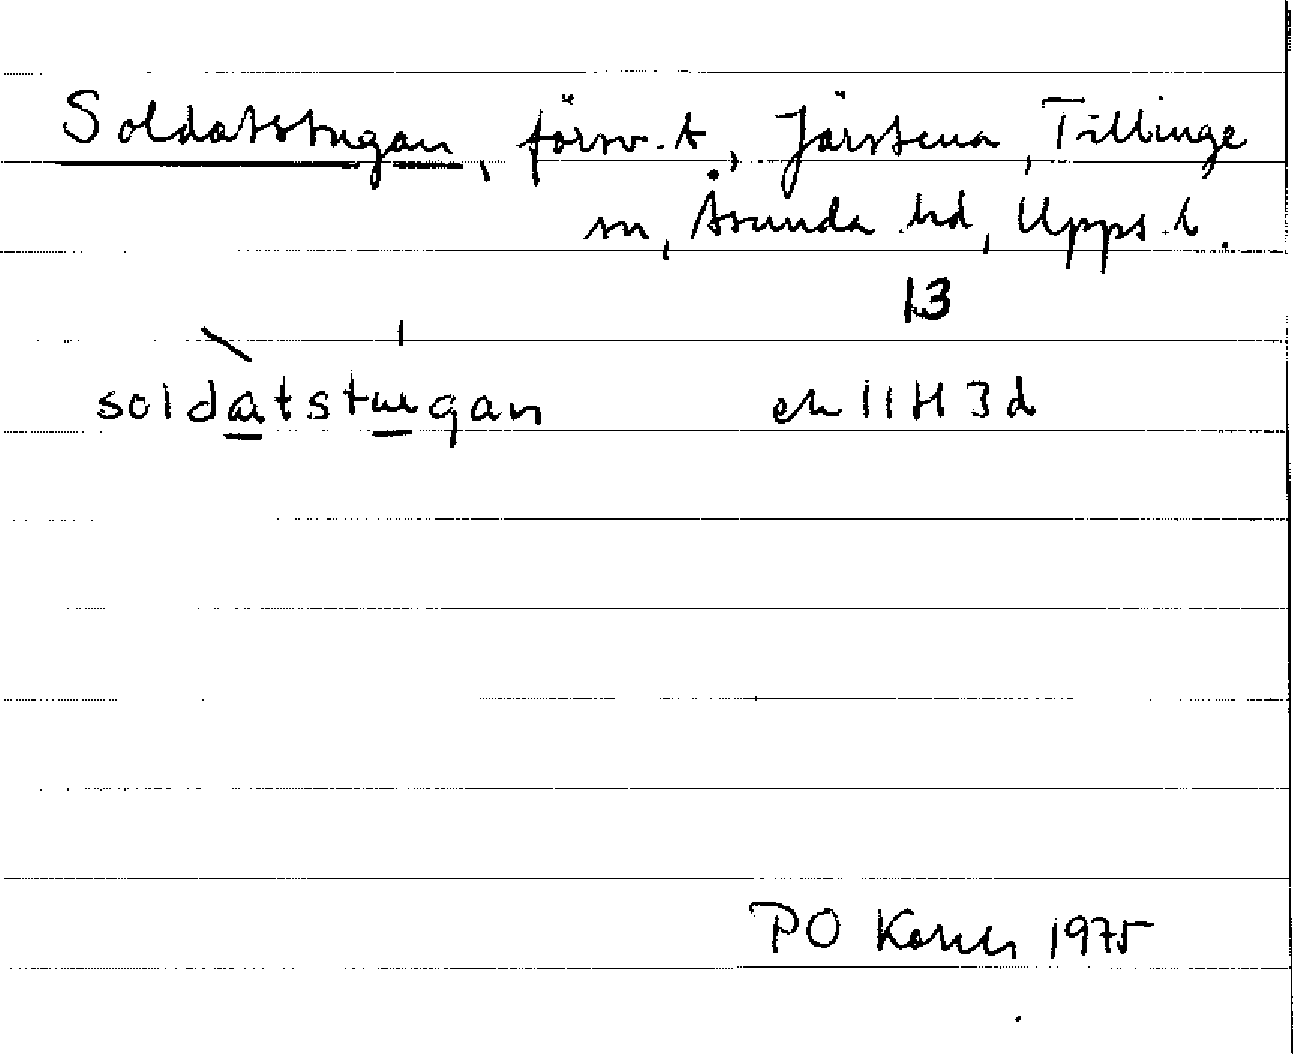 Soldatstugan, försv. t, Järstena, Tillinge
sn, Åsunda hd, Upps. l.
13
soldatstugan ek 11H 3d
PO 1975